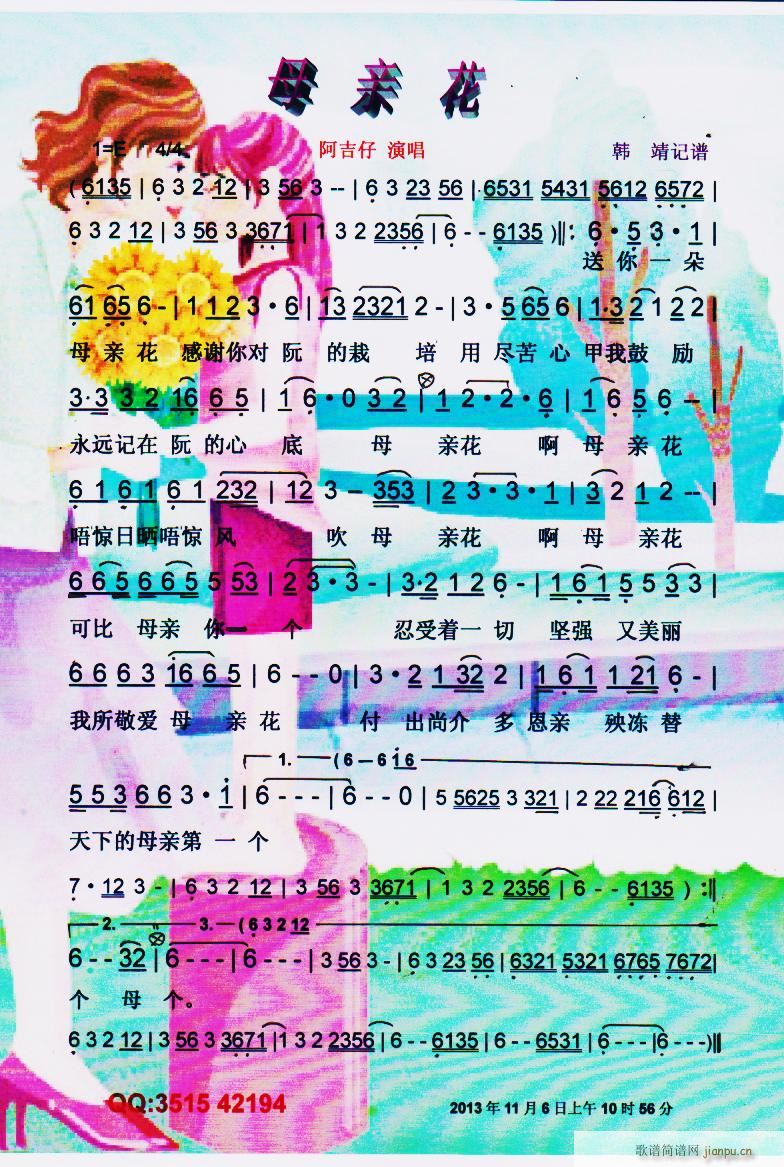 母亲花
1=E 4/4 阿吉仔 演唱 韩 靖记谱
( 6135 | 6 3 2 12 | 3 56 3 -- | 6 3 23 56 | 6531 5431 5612 6572 |
6 3 2 12 | 3 56 3 3671 | 1 3 2 2356 | 6 - - 6135 )‖: 6 · 5 3 · 1 |
送 你 一 朵
61 65 6 - | 1 1 2 3 · 6 | 13 2321 2 - | 3 · 5 65 6 | 1·3 2 1 2 2 |
母 亲 花 感谢你对 阮 的栽 培 用 尽苦 心 甲我鼓 励
3·3 3 2 16 6 5 | 1 6 · 0 3 2 | 1 2 · 2 · 6 | 1 6 5 6 -- |
永远记在 阮 的心 底 母 亲花 啊 母 亲 花
6 1 6 1 6 1 232 | 12 3 -- 353 | 2 3 · 3 · 1 | 3 2 1 2 -- |
唔惊日晒唔惊 风 吹 母 亲花 啊 母 亲花
6 6 5 6 6 5 5 53 | 2 3 · 3 - | 3·2 1 2 6 - | 1 6 1 5 5 3 3 |
可比 母亲 你一 个 忍受着一 切 坚强 又美丽
6 6 6 3 16 6 5 | 6 - - 0 | 3 · 2 1 32 2 | 1 6 1 1 21 6 - |
我所敬爱 母 亲花 付 出尚介 多 恩亲 殃冻 替
1. — ( 6 – 6 1 6
5 5 3 6 6 3 · 1 | 6 - - - | 6 - - 0 | 5 5625 3 321 | 2 22 216 612 |
天下的母亲第 一 个
7 · 12 3 - | 6 3 2 12 | 3 56 3 3671 | 1 3 2 2356 | 6 - - 6135 ) :‖
2. — 3. — ( 6 3 2 12
6 - - 32 | 6 - - - | 6 - - - | 3 56 3 - | 6 3 23 56 | 6321 5321 6765 7672 |
个 母 个。
6 3 2 12 | 3 56 3 3671 | 1 3 2 2356 | 6 -- 6135 | 6 -- 6531 | 6 - - - | 6 - - - )‖
QQ:3515 42194 2013 年 11 月 6 日上午 10 时 56 分
歌谱简谱网 jianpu.cn